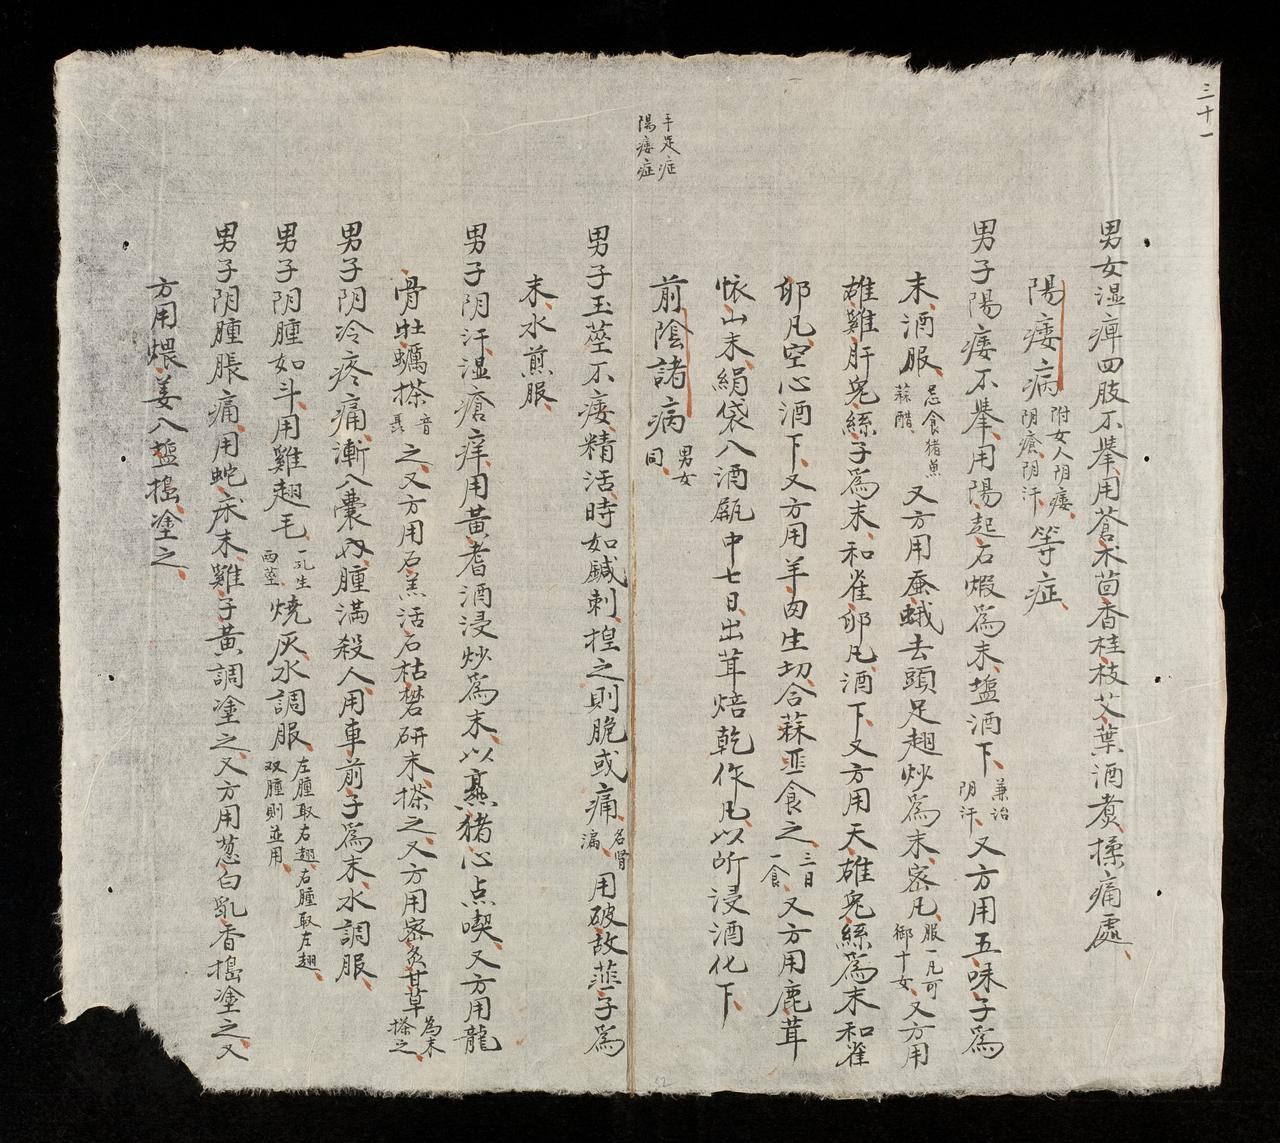 三十一
男女湿痺四肢不舉用蒼朮茴香桂枝艾葉酒煑揉痛處
陽痿病附女人阴痿阴瘡阴汗等症
男子陽痿不舉用陽起石煆爲末塩酒下兼治阴汗又方用五味子爲
末酒服忌食猪魚蒜醋又方用蚕蛾去頭足翅炒爲末密凡服一凡可御十女又方用
雄雞肝兔絲子爲末和雀卵凡酒下又方用天雄兔絲爲末和雀
卵凡空心酒下又方用羊肉生切合蒜韮食之三日一食又方用鹿茸
怀山末絹袋入酒甁中七日出茸焙乾作凡以所浸酒化下
手足症
陽痿症
前陰諸病男女同
男子玉莖不痿精活時如鍼刺揑之則脆或痛名腎漏用破故韮子爲
末水煎服
男子阴汗湿瘡痒用黃耆酒浸炒爲末以熟猪心点喫又方用龍
骨牡蠣搽音茶之又方用石羔活石枯礬研末搽之又方用密炙甘草爲末搽之
男子阴冷疼痛漸入囊內腫滿殺人用車前子爲末水調服
男子阴腫如斗用雞翅毛一孔生兩莖燒灰水調服左腫取右翅右腫取左翅双腫則並用
男子阴腫脹痛用蛇床末雞子黃調塗之又方用葱白乳香搗塗之又
方用煨姜入塩搗塗之